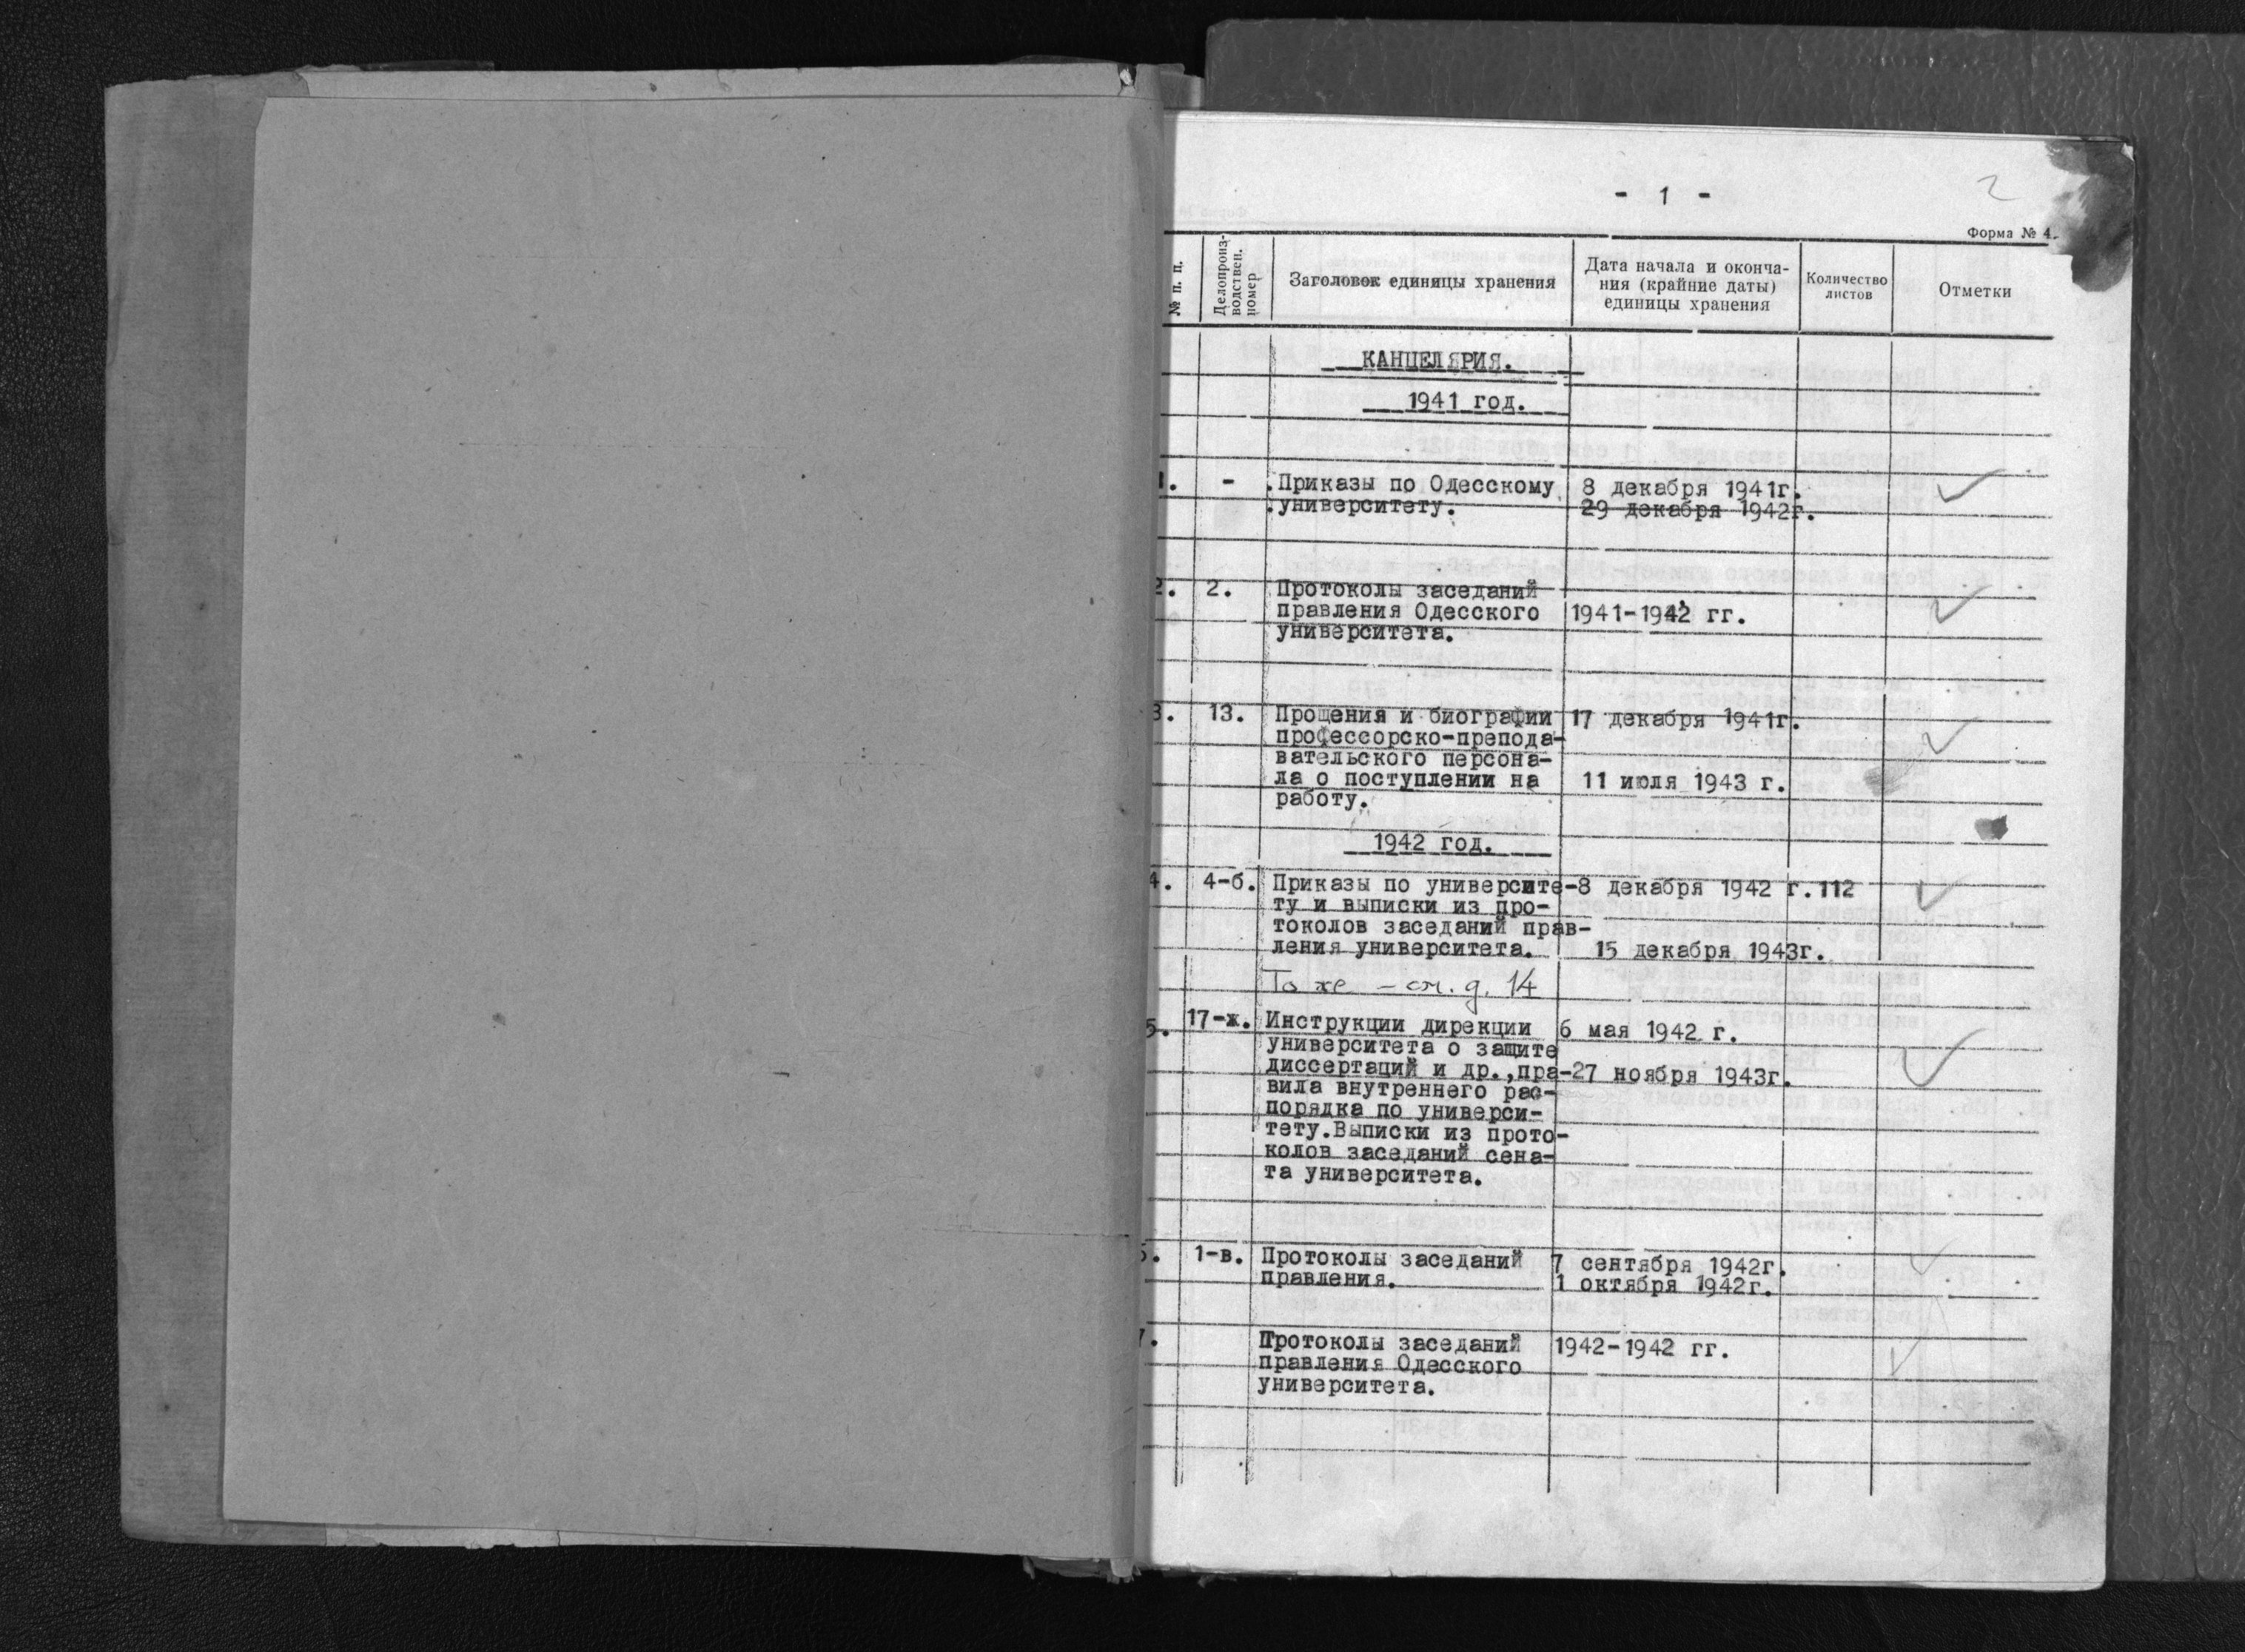 - 1 -
2
Форма № 4.
№ п. п.
Делопроиз-
водствен.
номер
Заголовок единицы хранения
Дата начала и оконча-
ния (крайние даты)
единицы хранения
Количество
листов
Отметки
КАНЦЕЛЯРИЯ.
1941 год.
1. - Приказы по Одесскому 8 декабря 1941г.
университету. 29 декабря 1942г.
2. 2. Протоколы заседаний
правления Одесского 1941-1942 гг.
университета.
3. 13. Прощения и биографии 17 декабря 1941г.
профессорско-препода-
вательского персона-
ла о поступлении на 11 июля 1943 г.
работу.
1942 год.
4. 4-б. Приказы по университе-8 декабря 1942 г. 112
ту и выписки из про-
токолов заседаний прав-
ления университета. 15 декабря 1943г.
То же - см. д. 14
5. 17-ж. Инструкции дирекции 6 мая 1942 г.
университета о защите
диссертаций и др.,пра-27 ноября 1943г.
вила внутреннего рас-
порядка по универси-
тету.Выписки из прото-
колов заседаний сена-
та университета.
6. 1-в. Протоколы заседаний 7 сентября 1942г.
правления. 1 октября 1942г.
7. Протоколы заседаний 1942-1942 гг.
правления Одесского
университета.